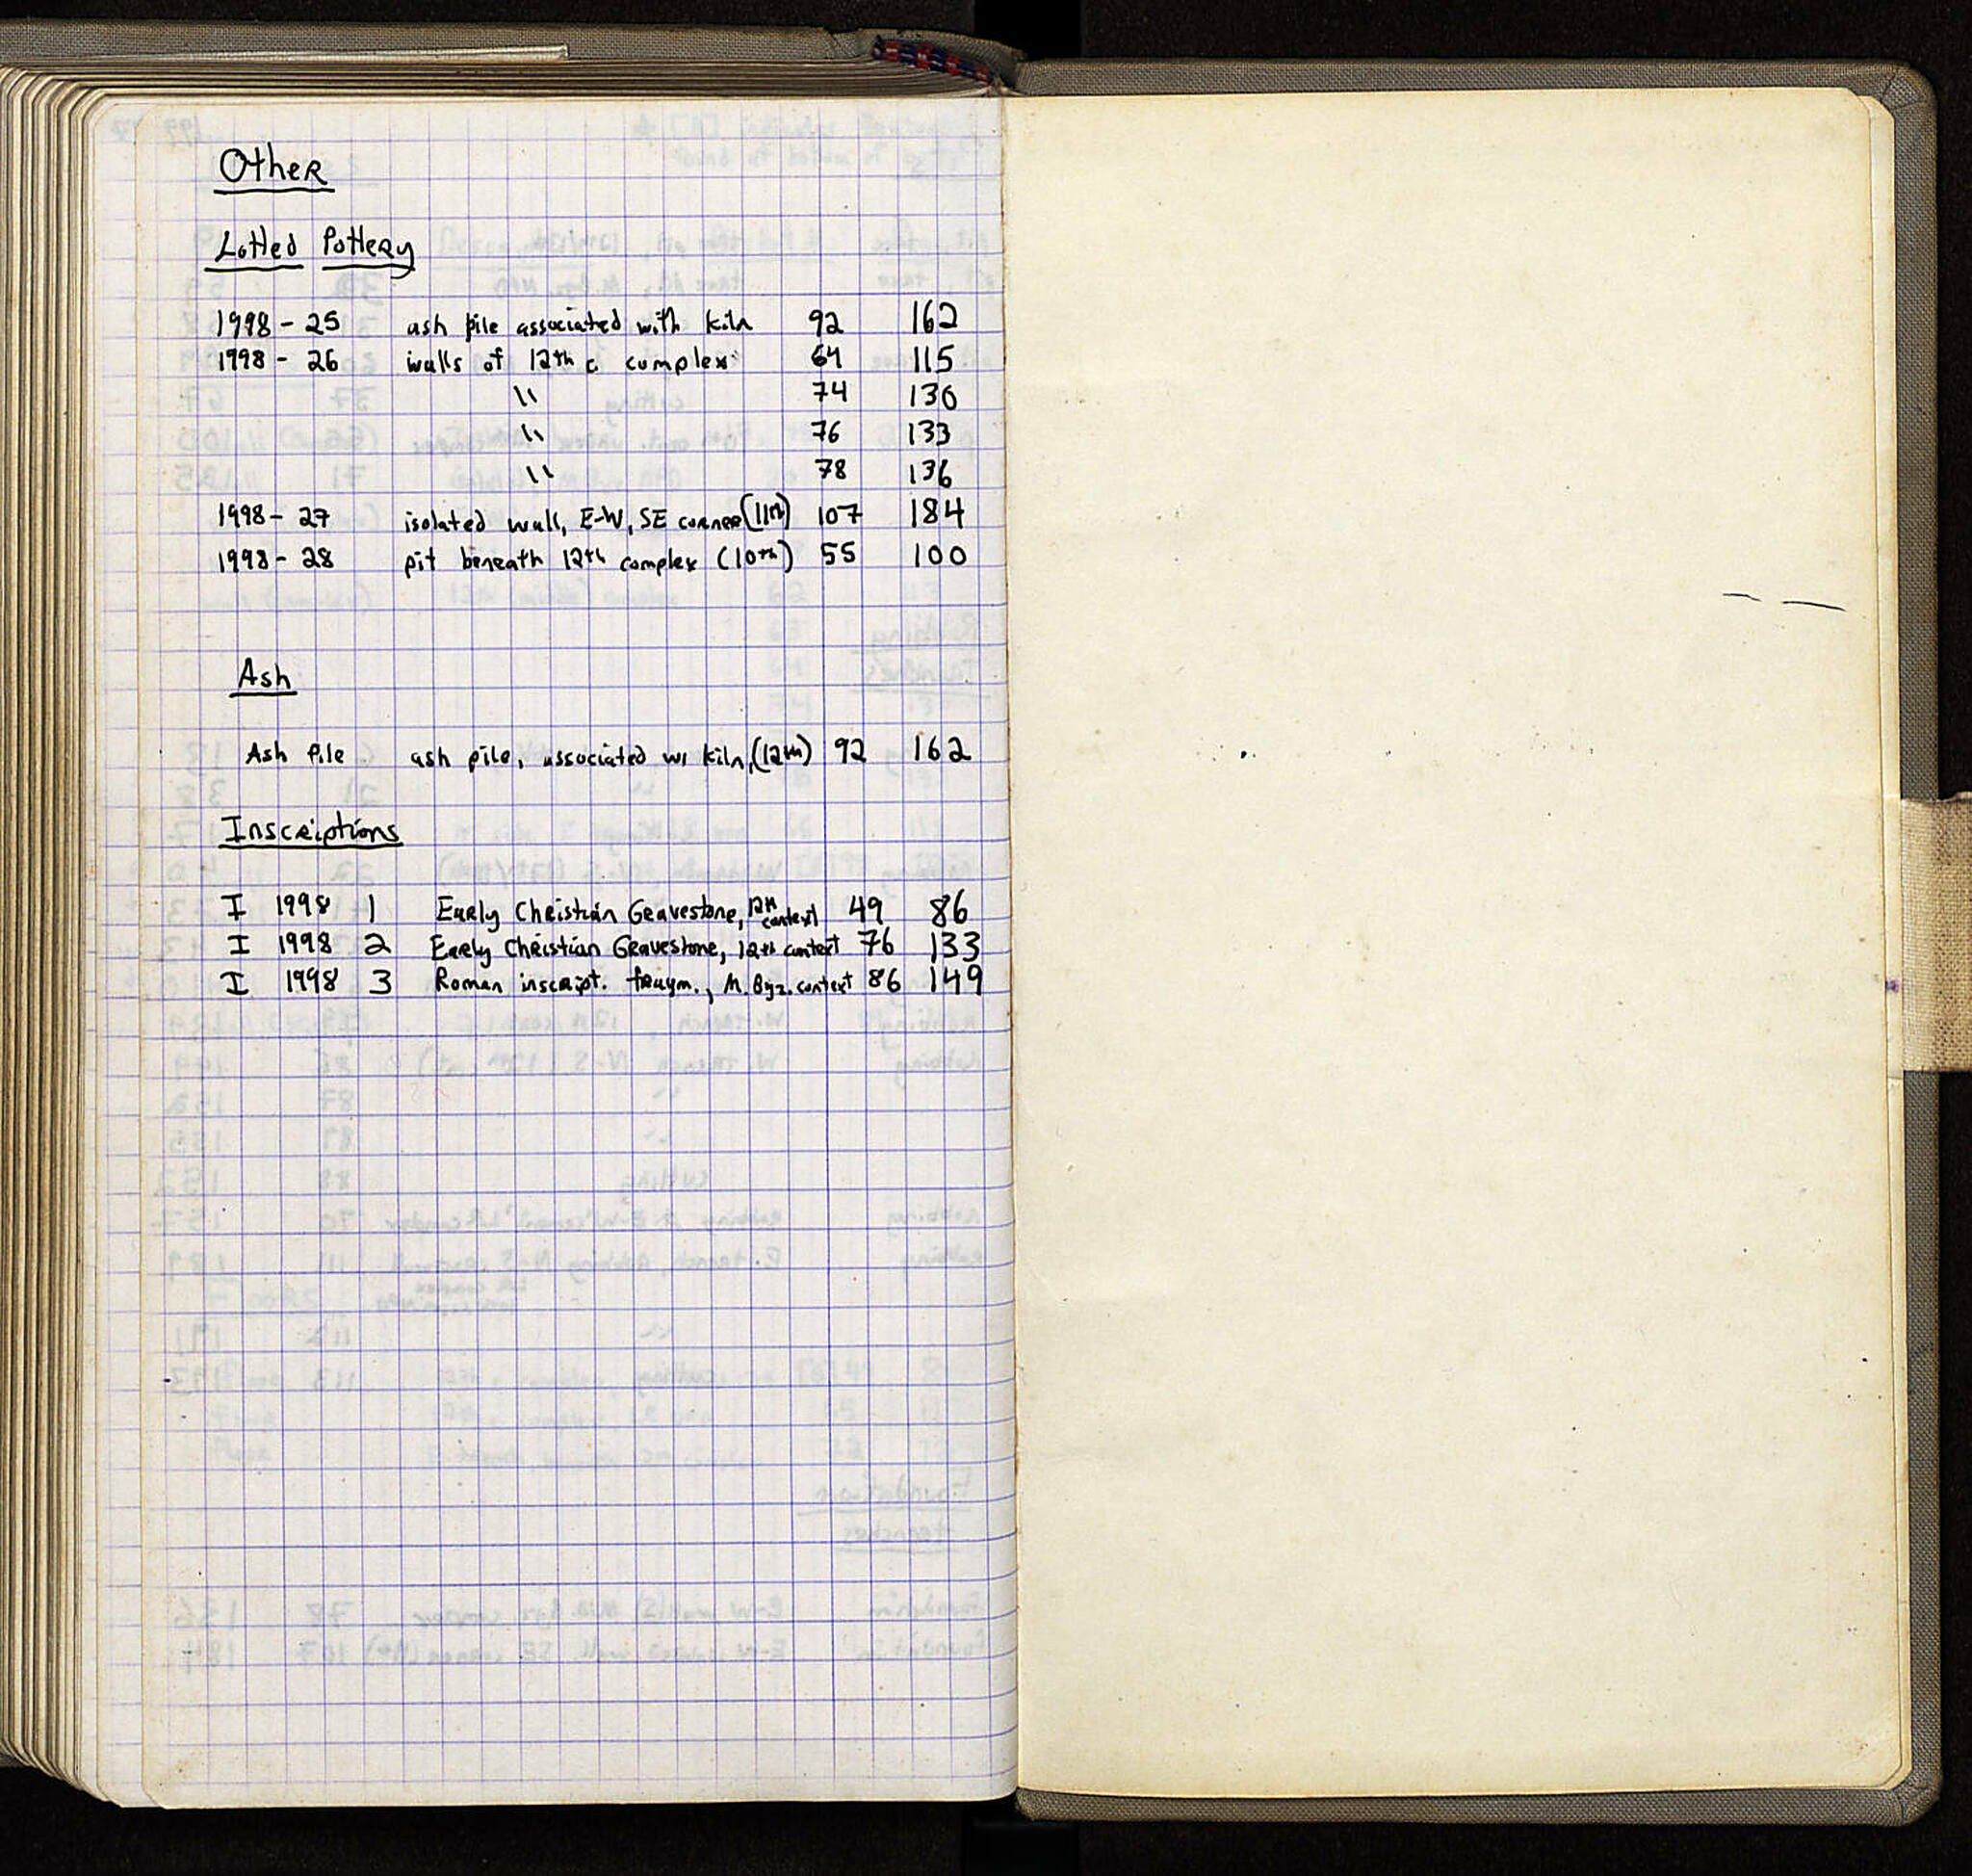 Other
Lotted Pottery
1998 - 25 ash pile associated with kiln 92 162
1998 - 26 walls of 12th c complex 64 115
" 74 130
" 76 133
" 78 136
1998 - 27 isolated wall, E-W, SE corner (11th) 107 184
1998 - 28 pit beneath 12th complex (10th) 55 100
Ash
Ash Pile ash pile, associated w/ kiln, (12th) 92 162
Inscriptions
I 1998 1 Early Christian Gravestone, 12th context 49 86
I 1998 2 Early Christian Gravestone, 12th context 76 133
I 1998 3 Roman inscript. fragm., M. Byz. context 86 149